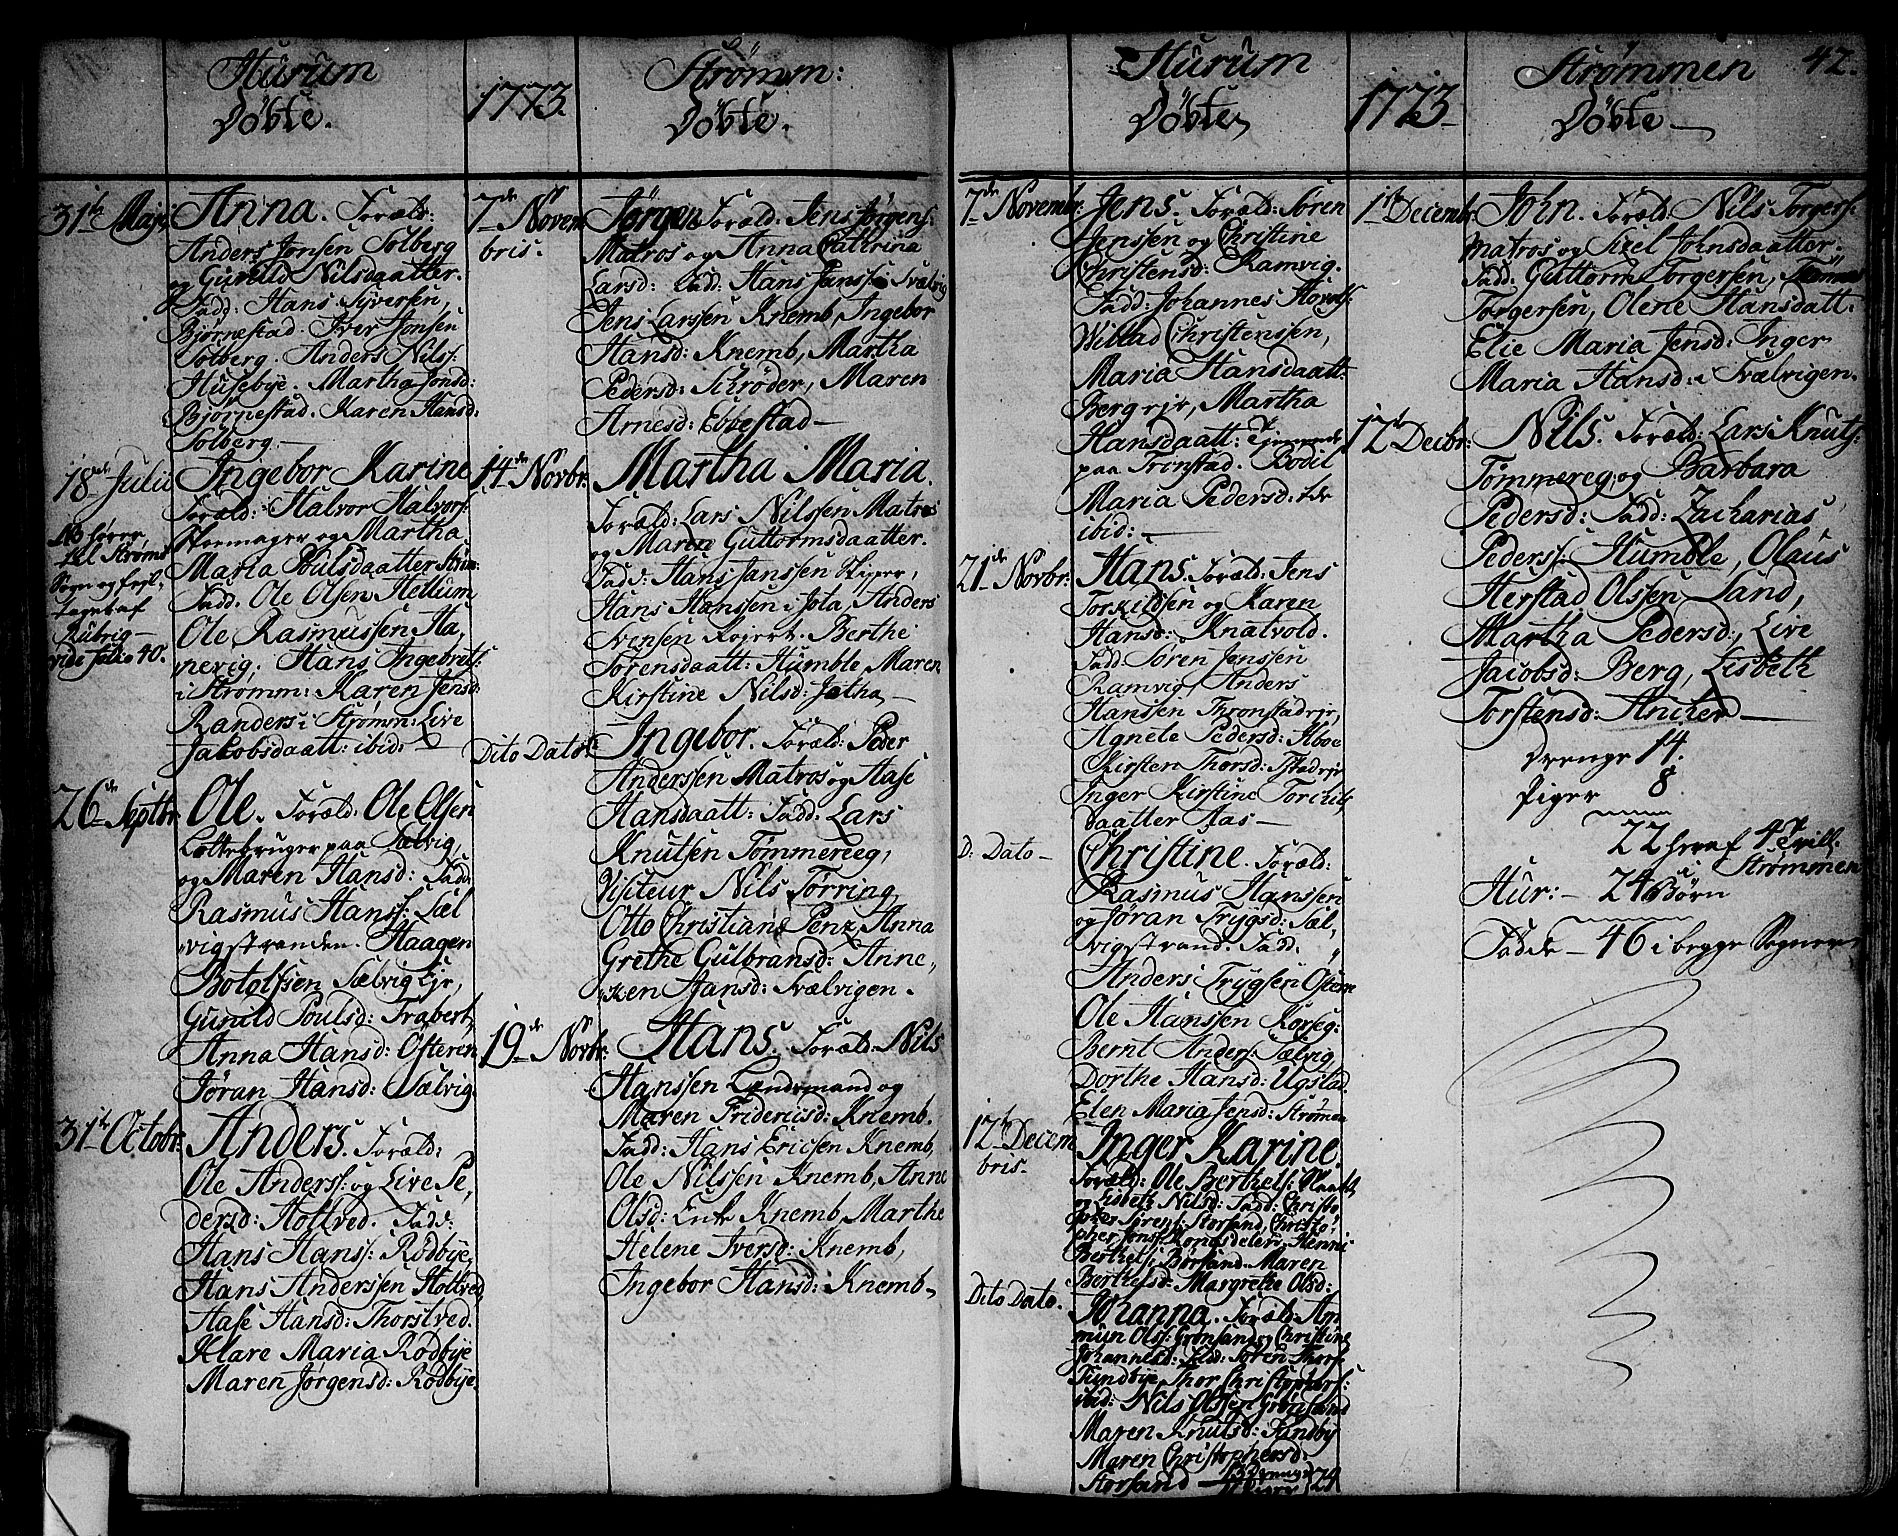 Hurum
Döbte.
1773.
Strømm:
Döbte.
31te Maji
Anna. Foræld:
Anders Jonsen Solberg
og Gunild Nilsdaatter.
Fadd: Hans Syversen,
Bjørnestad. Iver Jonsen
Solberg. Anders Nilss:
Husebye. Martha Jonsd:
Bjørnestad. Karen Hansd:
Solberg.
18de Julii
NB hører
til Strøms
Sogn og
vide folio 40.
Ingebor Karine
Foræld: Halvor Halvors:
og Martha
Maria Poulsdaatter Strøm:
Fadd. Ole Olsen Hellum
Ole Rasmussen Ha,
nevig, Hans Ingebrets:
i Strømm: Karen Jensd:
Randers i Strømn: Live
Jakobsdaatt: ibid:
26de Septbr:
Ole. Foræld: Ole Olsen
Lottebruger paa Sælvig,
og Maren Hansd: Fadd:
Rasmus Hanss: Sæl
vigstranden. Haagen
Botolfsen Sælvig Ejr,
Gunild Poulsd: Trabert,
Anna Hansd: Ofteren
Jøran Hansd: Sælvig.
31te Octobr:
Anders. Foræld:
Ole Anderss: og Live Pe,
dersd: Holtved. Fadd:
Hans Hanss: Rødbye,
Hans Anderssen Holtved
Aase Hansd: Thorstved.
Klare Maria Rødbye
Maren Jørgensd: Rødbye.
7de Novem
bris.
Jørgen Foræld: Jens Jørgens:
Matros og Anna Cathrina
Larsd: Fadd: Hans Janss: Svælvig
Jens Larssen Knemb, Ingebor
Hansd: Knemb, Martha
Pedersd: Schrøder, Maren
Arnesd: Ebbestad
14de Novbr:
Martha Maria.
Foræld: Lars Nilssen Matros
og Maren Guttormsdaatter.
Fadd: Hans Janssen Skiper,
Hans Hanssen i Jola, Anders
Svensen Berthe
Sørensdaatt: Humble Maren
Kirstine Nilsd: Jotha,
Dito Dato:
Ingebor. Foræld: Peder
Anderssen Matros og Aase
Hansdaatt: Fadd: Lars
Knutsen Tømmereeg,
Visiteur Nils Tørring,
Otto Christians Penz, Anna
Grethe Gulbransd: Anne,
ken Hansd: Svælvigen.
19de Novbr:
Hans. Foræld: Nils
Hanssen Lændsmand og
Maren Fridericsd: Knemb.
Fadd: Hans Ericsen Knemb,
Ole Nilssen Knemb, Anne
Olsd: Enke Knemb, Marthe
Helene Iversd: Knemb,
Ingebor Hansd: Knemb.
Hurum
Döbte
1773.
Strømmen 42.
Döbte
7de Novembr:
Jens. Foræld: Søren
Jenssen og Christine
Christensd: Ramvig.
Fadd: Johannes
Willad Christensen,
Maria Hansdaatt:
Berg ejr, Martha
Hansdaatt: Tjenende
paa Tronstad. Bodil
Maria Pedersd:
ibid:
21de Novbr:
Hans. Foræld: Jens
Torkildsen og Karen
Hansd: Knatvold.
Fadd: Søren Jenssen
Ramvig, Anders
Hanssen Thronstad ejr,
Agnete Pedersd: Aboe
Kirsten Thorsd:
Inger Kirstine Torkils
daatter Aas
D: Dato
Christine. Foræld:
Rasmus Hanssen
og Jøran Trygsd: Sæl,
vigstrand. Fadd:
Anders Trygsen Oftern
Ole Hanssen Korseg:
Bernt Anders: Sælvig,
Dorthe Hansd: Ugstad
Elen Maria Jensd: Strømen
12te Decem
bris.
Inger Karine.
Foræld: Ole Berthels:
og Lisbeth Nilsd: Fadd: Christo,
Storsand, Christo,
pher Jonss:
Berthels: Børsand. Maren
Berthelsd: Margrethe Olsd:
Dito Dato.
Johanna. Foræld: Am
mun Olss: Grønsand og Christine
Johannesd: Fadd: Søren Thors:
Tundbye, Thor Christophers:
ibid: Nils Olssen Grønsand
Maren Knutsd: Sandby
Maren Christophersd:
Storsand
1te Decembr:
John. Foræld: Nils Torgers:
Matros og Sizel Johnsdaatter.
Fadd: Guttorm Torgersen,
Torgersen, Olene Hansdatt.
Elie Maria Jensd: Inger
Maria Hansd: i Svælvigen.
12te Decbr:
Nils. Foræld: Lars Knuts:
Tømmereg og Barbara
Pedersd: Fadd: Zacharias
Pederss: Humble, Olaus
Herstad Olssen Sand,
Martha Pedersd: Live
Jacobsd: Berg, Lisbeth
Torstensd: Ancher
Drenge 14.
Piger 8
22 heraf 4 Tvill.
i Strømmen
Hur: 24 Børn
46 i begge Sogner